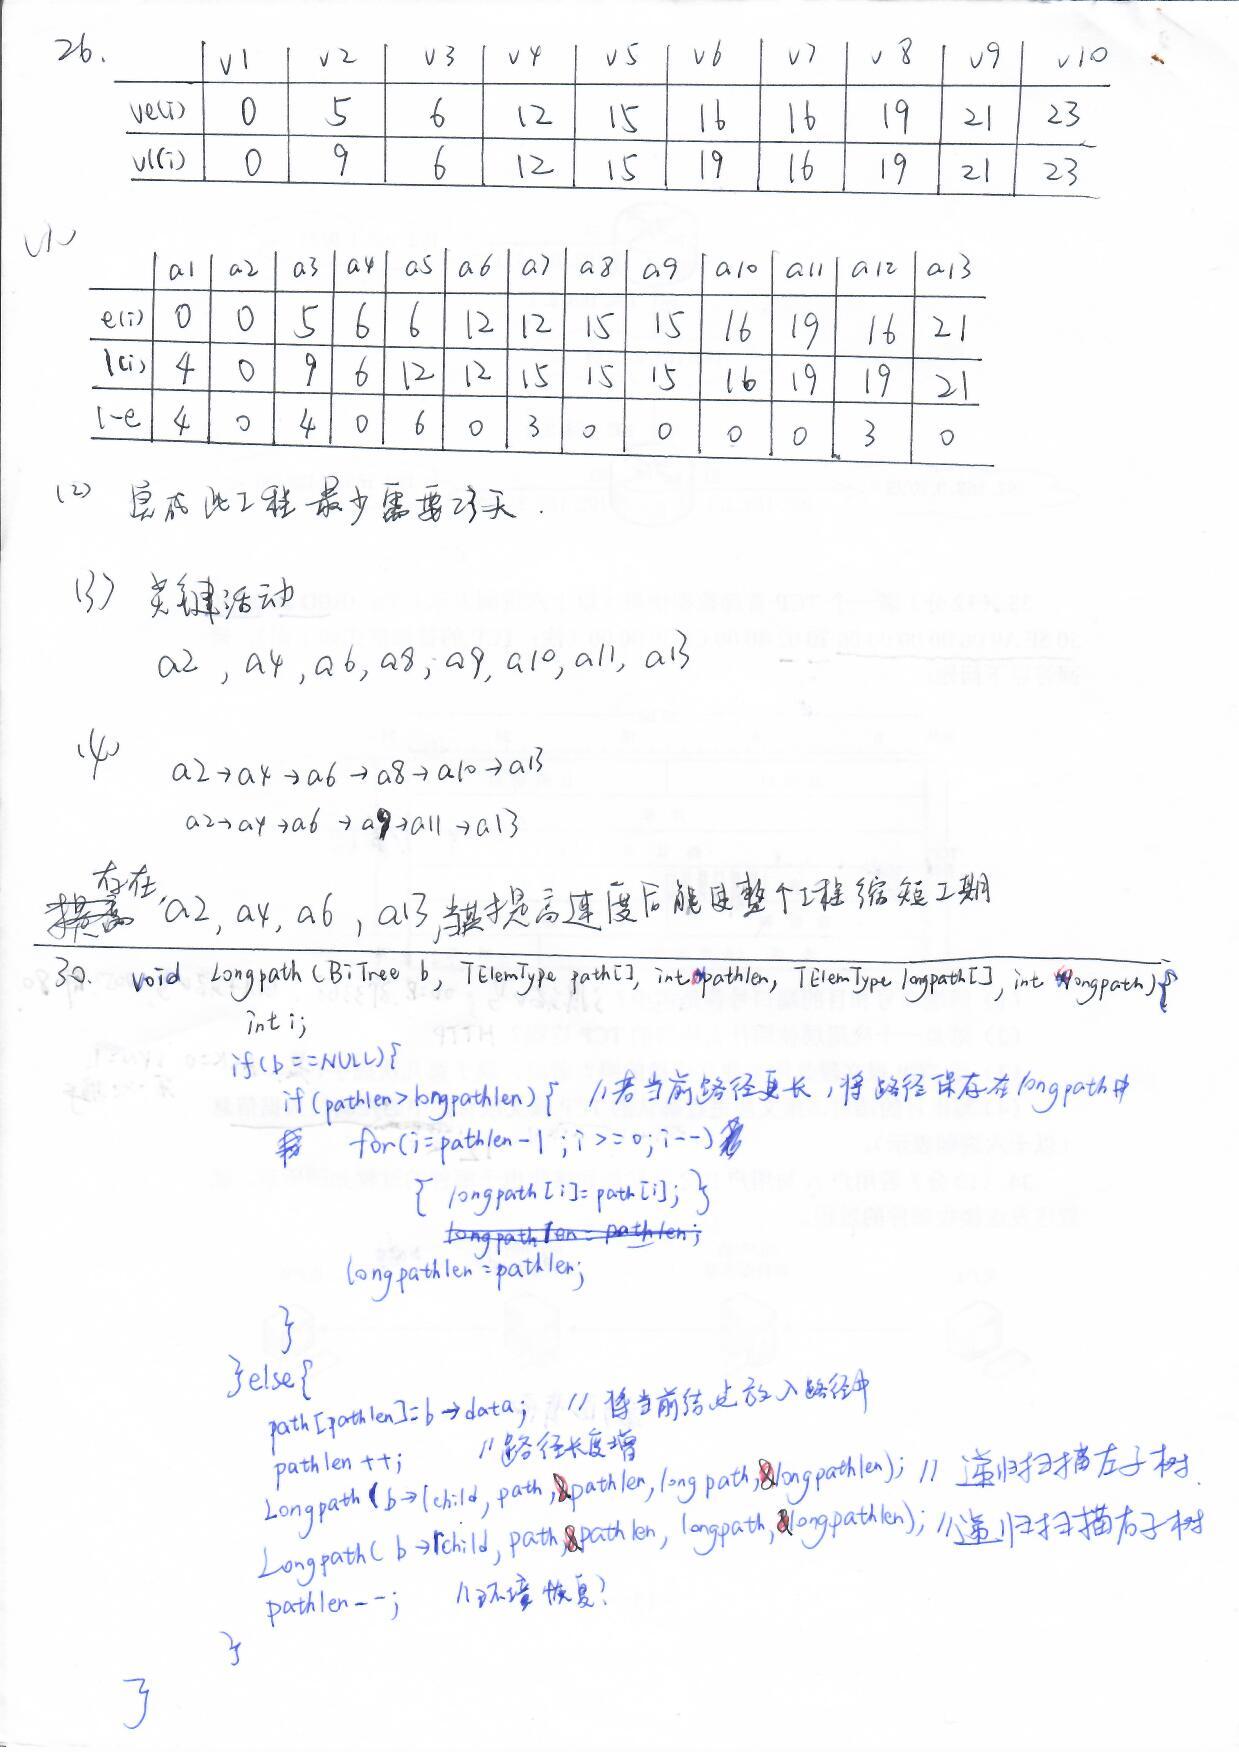 26.
v1 v2 v3 v4 v5 v6 v7 v8 v9 v10
ve(i) 0 5 6 12 15 16 16 19 21 23
vl(i) 0 9 6 12 15 19 16 19 21 23
(1)
a1 a2 a3 a4 a5 a6 a7 a8 a9 a10 a11 a12 a13
e(i) 0 0 5 6 6 12 12 15 15 16 19 16 21
l(i) 4 0 9 6 12 12 15 15 15 16 19 19 21
l-e 4 0 4 0 6 0 3 0 0 0 0 3 0
(2) 完成此工程最少需要23天.
(3) 关键活动
a2, a4, a6, a8, a9, a10, a11, a13
(4) a2→a4→a6→a8→a10→a13
a2→a4→a6→a9→a11→a13
存在, a2, a4, a6, a13, 当其提高速度后能使整个工程缩短工期
30. void Longpath (BiTree b, TElemType path[], int pathlen, TElemType longpath[], int longpath){
int i;
if(b==NULL){
if(pathlen>longpathlen){ //若当前路径更长,将路径保存在longpath中
for(i=pathlen-1;i>=0;i--)
{ longpath[i]=path[i]; }
longpathlen = pathlen;
longpathlen=pathlen;
}
}else{
path[pathlen]=b→data; //将当前结点放入路径中
pathlen++; //路径长度增
Longpath(b→lchild, path,&pathlen, longpath,&longpathlen); //递归扫描左子树.
Longpath(b→rchild, path,&pathlen, longpath,&longpathlen); //递归扫描右子树
pathlen--; //环境恢复?
}
}